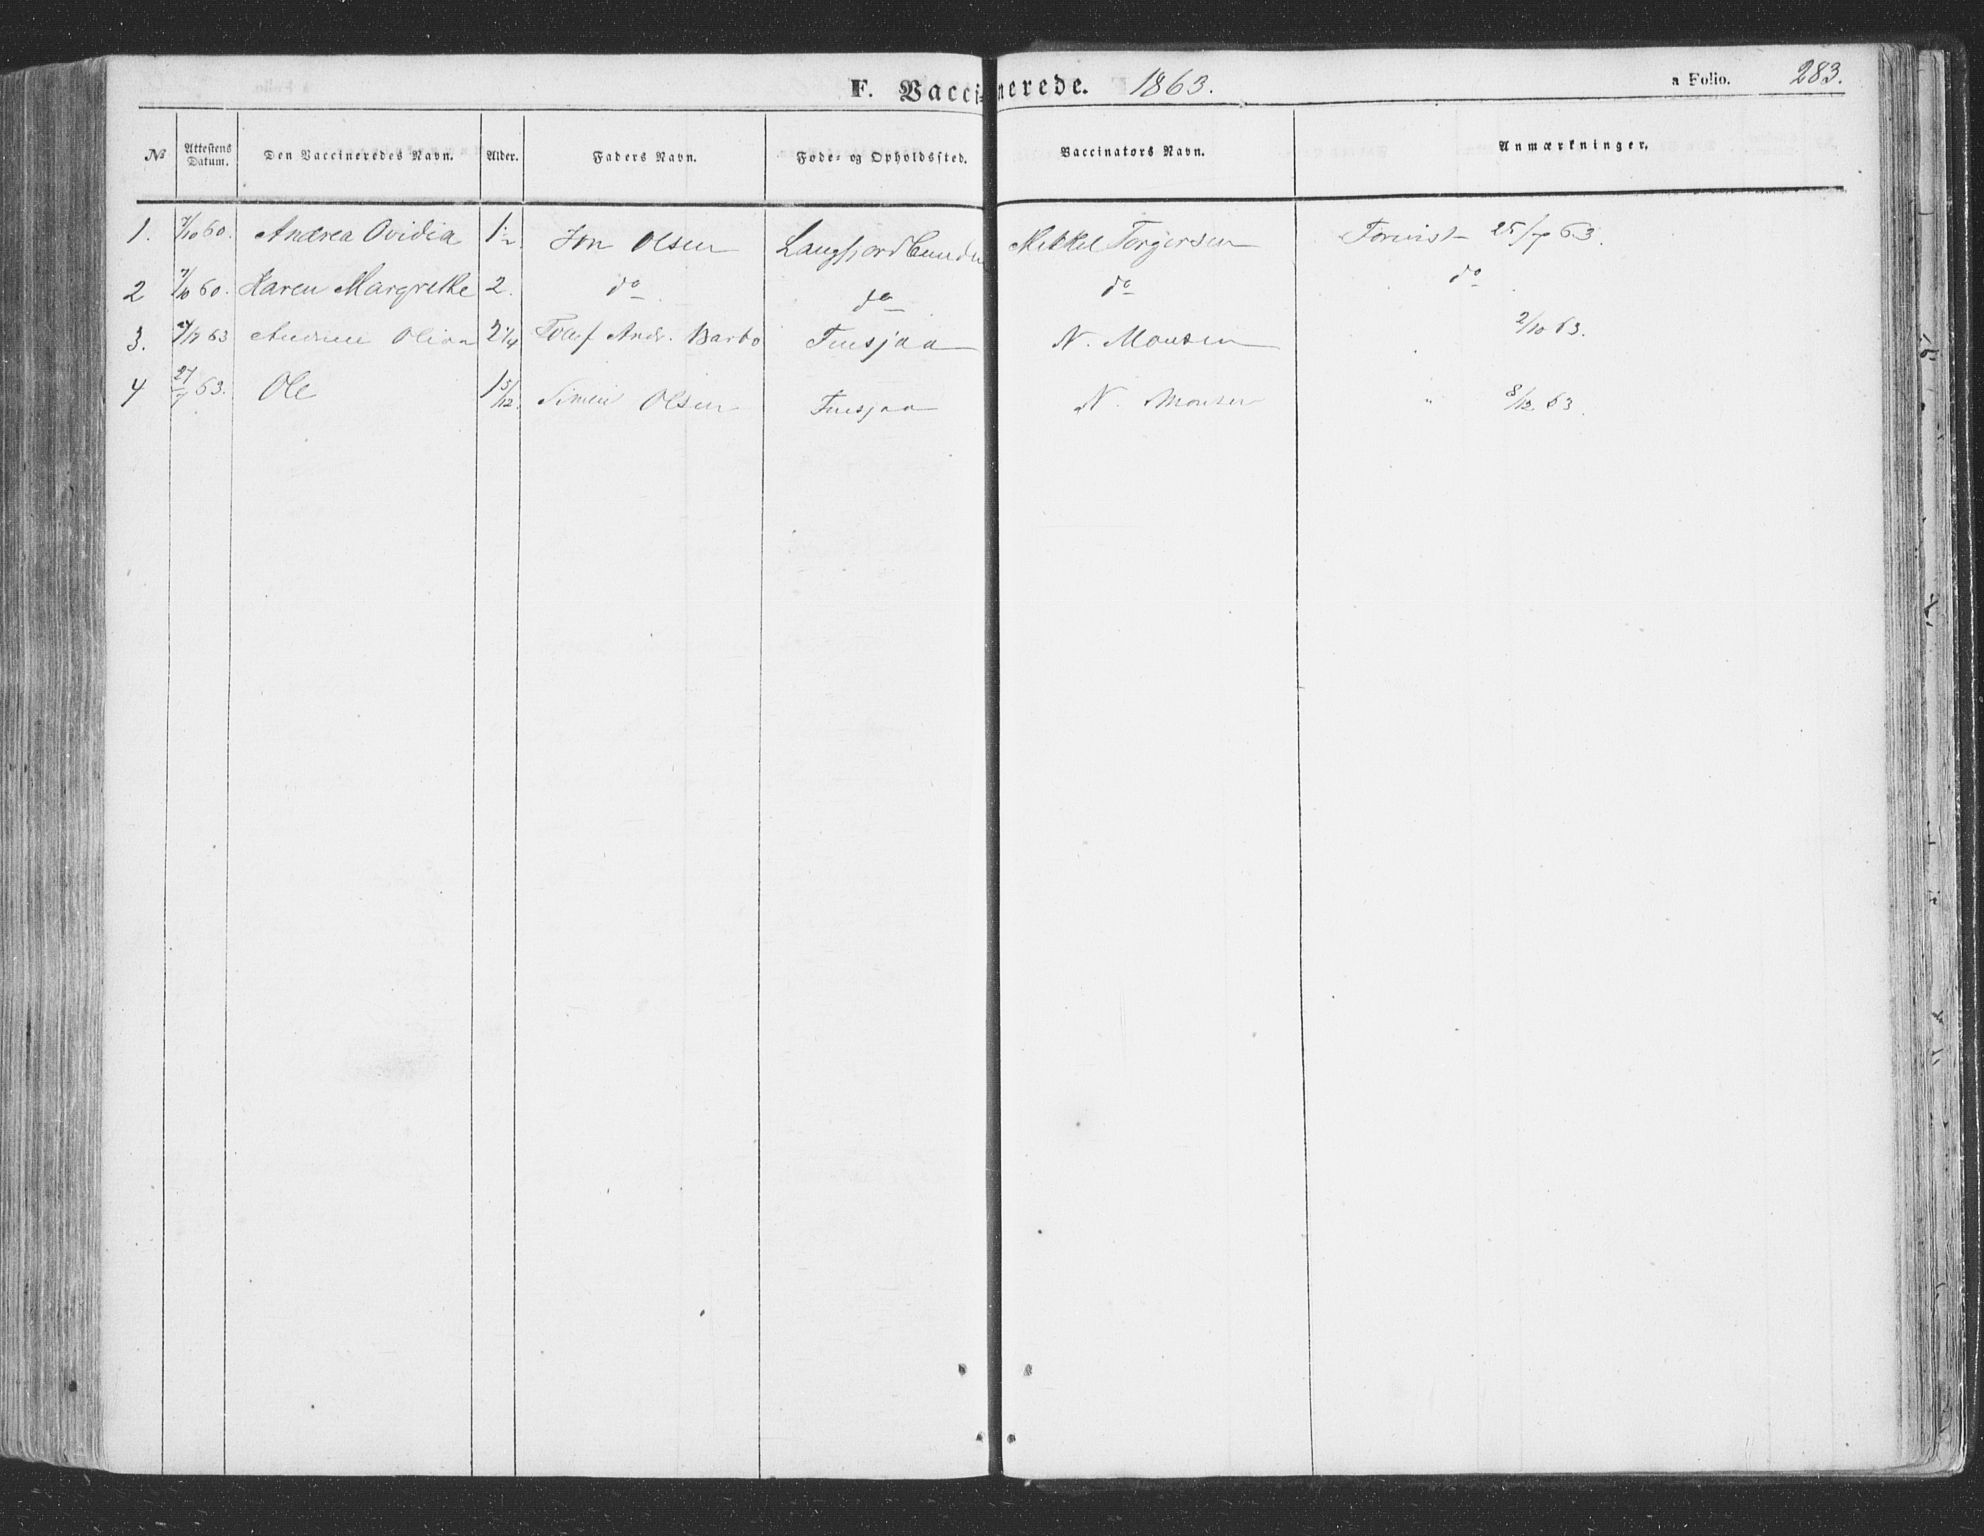 F. Vaccinerede. 1863. a Folio. 283.
№ Attestens Datum. Den Vaccineredes Navn. Alder. Faders Navn. Føde- og Opholdssted. Vaccinators Navn. Anmærkninger.
1. 7/10 60. Andrea Ovidia 1 1/2. Jon Olsen Langfjordbunden Mikkel Torgersen Forevist 25/7 63.
2 7/10 60. Karen Margrethe 2. do do do do
3. /7 63 Andrine Olivia 2 1/4 Andr. Barbo N. Monsen 2/10 63.
4 27/7 63. Ole 1 5/12. Simen Olsen N. Monsen " 8/12 63.